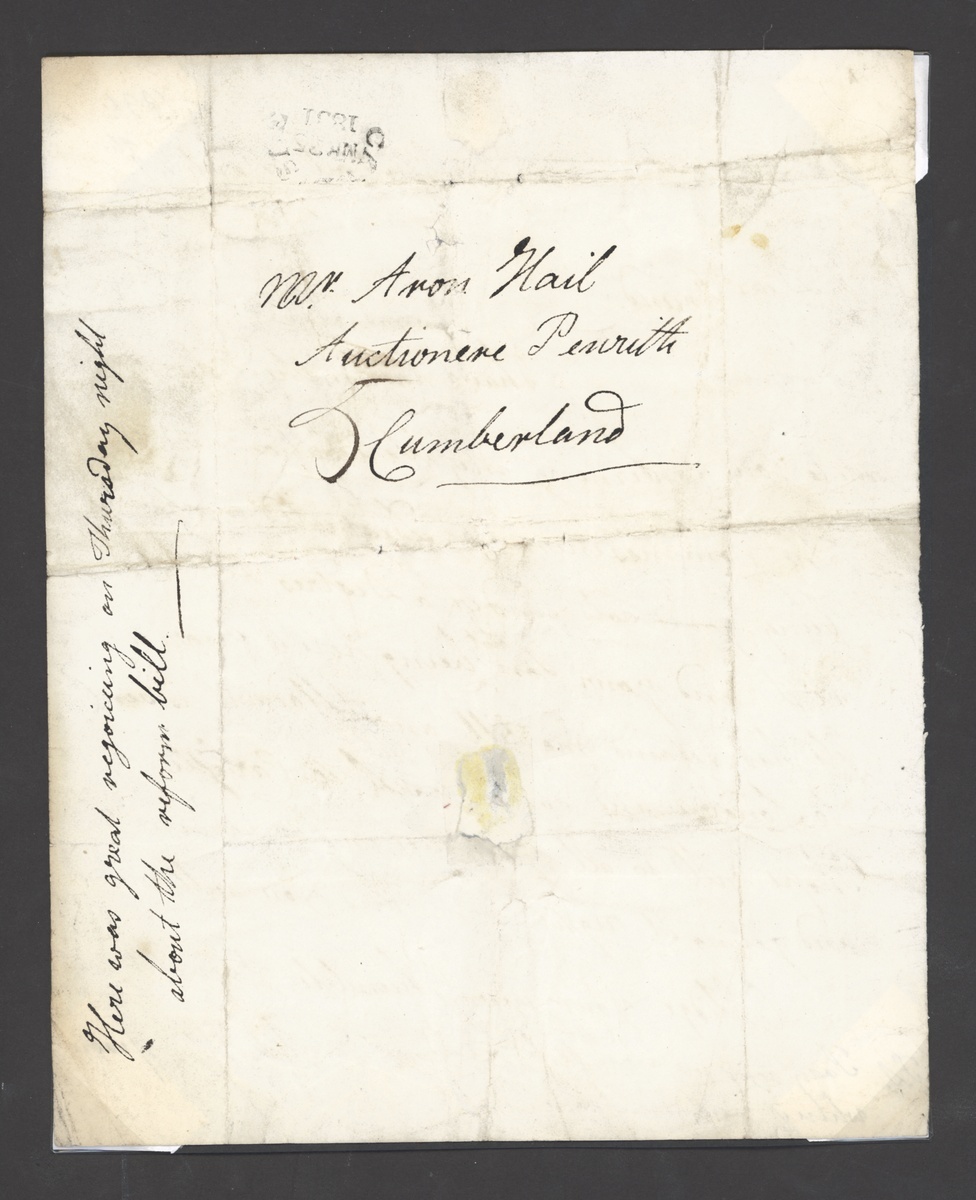 1831
Mr. Aron Hail
Auctionere Penrith
5 Cumberland
Here was great rejoicing on Thursday night
about the reform bill.